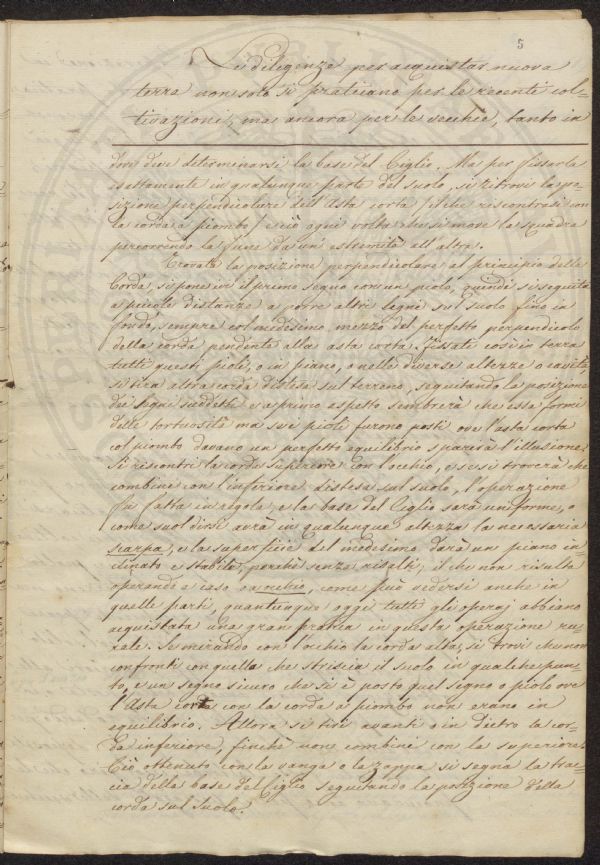 5
Le diligenze per acquistar nuova
terra non solo si praticano per le recenti col-
tivazioni, ma ancora per le vecchie, tanto in
dove deve determinarsi la base del Ciglio. Ma per fissarla
esattamente in qualunque parte del suolo, si ritrovi la po-
sizione perpendicolare dell'Asta corta, e che riscontrasi con
la corda a piombo, e ciò ogni volta che si move la squadra
percorrendo la fune da un'estremità all'altra.
Trovata la posizione perpendicolare al principio della
Corda, si pone ivi il primo segno con un piolo, quindi si seguita
a piccole distanze a porre altri segni sul suolo fino in
fondo, sempre col medesimo mezzo del perfetto perpendicolo
della corda pendente alla asta corta. Fissati così in terra
tutti questi pioli, o in piano, o nelle diverse altezze o cavità,
si tira altra corda distesa sul terreno, seguitando la posizione
dei segni suddetti e a primo aspetto sembrerà che essa formi
delle tortuosità ma se i pioli furono posti ove l'asta corta
col piombo davano un perfetto equilibrio sparirà l'illusione.
Si riscontri la corda superiore con l'occhio, e se si troverà che
combine con l'inferiore distesa sul suolo, l'operazione
fu fatta in regola, e la base del Ciglio sarà uniforme, o
come suol dirsi avrà in qualunque altezza la necessaria
scarpa, e la superficie del medesimo darà un piano in-
clinato e stabile, perchè senza risalti, il che non risulta
operando a caso o a occhio, come può vedersi anche in
quelle parti, quantunque oggi tutti gli operaj abbiano
acquistata una gran pratica in questa operazione ru-
rale. Se mirando con l'occhio la corda alta, si trovi che non
confronti con quella che striscia il suolo in qualche pun-
to, è un segno sicuro che si è posto quel segno o piolo ove
l'Asta corta con la corda a piombo non erano in
equilibrio. Allora si tiri avanti o in dietro la cor-
da inferiore, finchè non combini con la superiore.
Ciò ottenuto con la vanga o la zappa si segna la trac-
cia della base del Ciglio seguitando la posizione della
corda sul suolo.